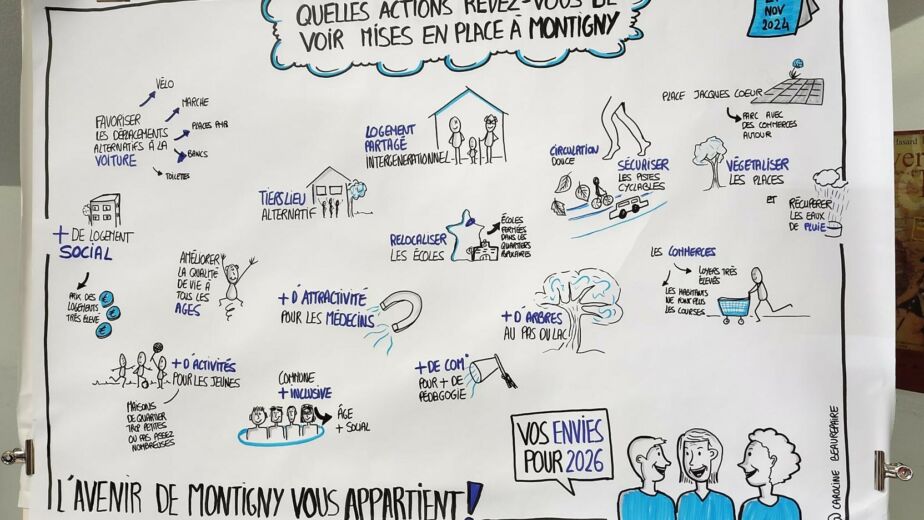 QUELLES ACTIONS RÊVEZ-VOUS DE
VOIR MISES EN PLACE À MONTIGNY
NOV
2024
VÉLO
MARCHE
PLACES PMR
BANCS
TOILETTES
FAVORISER
LES DÉPLACEMENTS
ALTERNATIFS À LA
VOITURE
LOGEMENT
PARTAGÉ
INTERGENERATIONNEL
CIRCULATION
DOUCE
SÉCURISER
LES PISTES
CYCLABLES
PLACE JACQUES COEUR
PARC AVEC
DES COMMERCES
AUTOUR
VÉGETALISER
LES PLACES
ET
RÉCUPÉRER
LES EAUX
DE PLUIE
TIERS LIEU
ALTERNATIF
+ DE LOGEMENT
SOCIAL
PRIX DES
LOGEMENTS
TRÈS ÉLEVÉ
AMÉLIORER
LA QUALITÉ
DE VIE À
TOUS LES
AGES
RELOCALISER
LES ÉCOLES
ÉCOLES
FERMÉES
DANS LES
QUARTIERS
POPULAIRES
LES COMMERCES
LOYERS TRÈS
ÉLEVÉS
LES HABITANTS
NE FONT PLUS
LES COURSES
+ D'ATTRACTIVITÉ
POUR LES MÉDECINS
+ D'ARBRES
AU PAS DU LAC
+ D'ACTIVITÉS
POUR LES JEUNES
MAISONS
DE QUARTIER
TROP PETITES
OU PAS ASSEZ
NOMBREUSES
COMMUNE
+ INCLUSIVE
ÂGE
+ SOCIAL
+ DE COM°
POUR + DE
PÉDAGOGIE
VOS ENVIES
POUR 2026
L'AVENIR DE MONTIGNY VOUS APPARTIENT !
CAROLINE BEAUREPAIRE